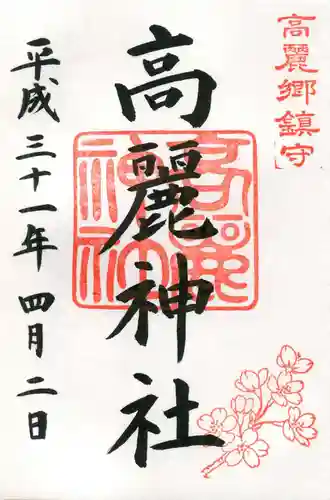 高麗郷鎮守
高麗神社
高麗神社
平成三十一年四月二日